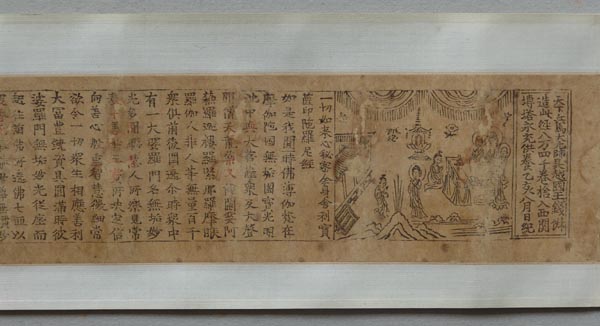 天下兵馬大元帥吳越國王錢俶
造此經八万四千卷捨入西關
塼塔永充供養乙亥八月日紀
一切如來心秘密全身舍利寶
篋印陀羅尼經
如是我聞一時佛薄伽梵在
摩伽陀國無垢園寶光明
池中與大菩薩衆及大聲
聞僧天龍藥叉健闥婆阿
蘇羅迦樓羅緊那羅摩睺
羅伽人非人等無量百千
衆俱前後圍遶尒時衆中
有一大婆羅門名無垢妙
光多聞聰慧人所樂見常
奉十善於三寶所決定信
向善心殷重智慧微細常
欲令一切衆生相應善利
大富豐饒資具圓滿時彼
婆羅門無垢妙光從座而
起往詣佛所遶佛七匝以